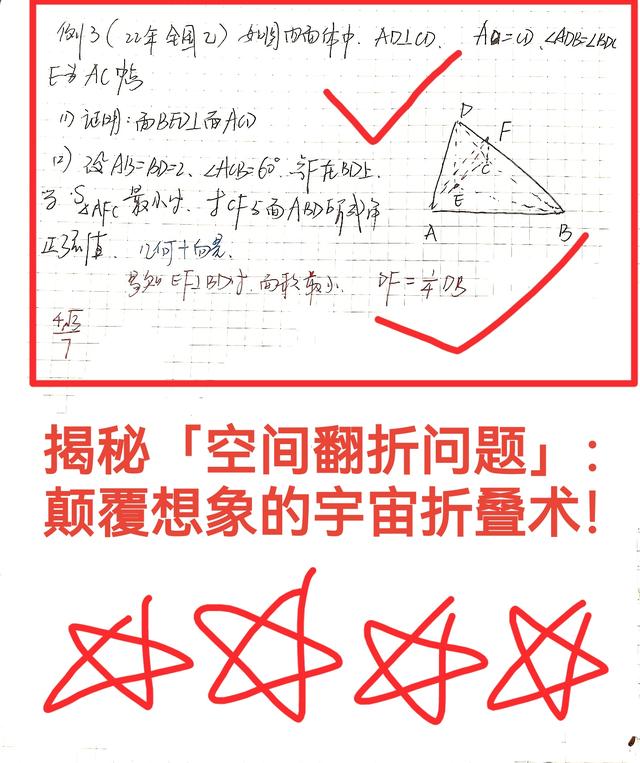 例3(22年全国乙)如图四面体中. AD⊥CD. AD=CD. ∠ADB=∠BDC
E为AC中点
(1) 证明:面BED⊥面ACD
(2) 设AB=BD=2. ∠ACB=60° 点F在BD上.
当S△AFC最小时. 求CF与面ABD所成角
正弦值. 几何+向量.
EF⊥BD时. 面积最小. DF=1/4DB
4√3/7
D
F
C
E
A
B
揭秘「空间翻折问题」:
颠覆想象的宇宙折叠术!